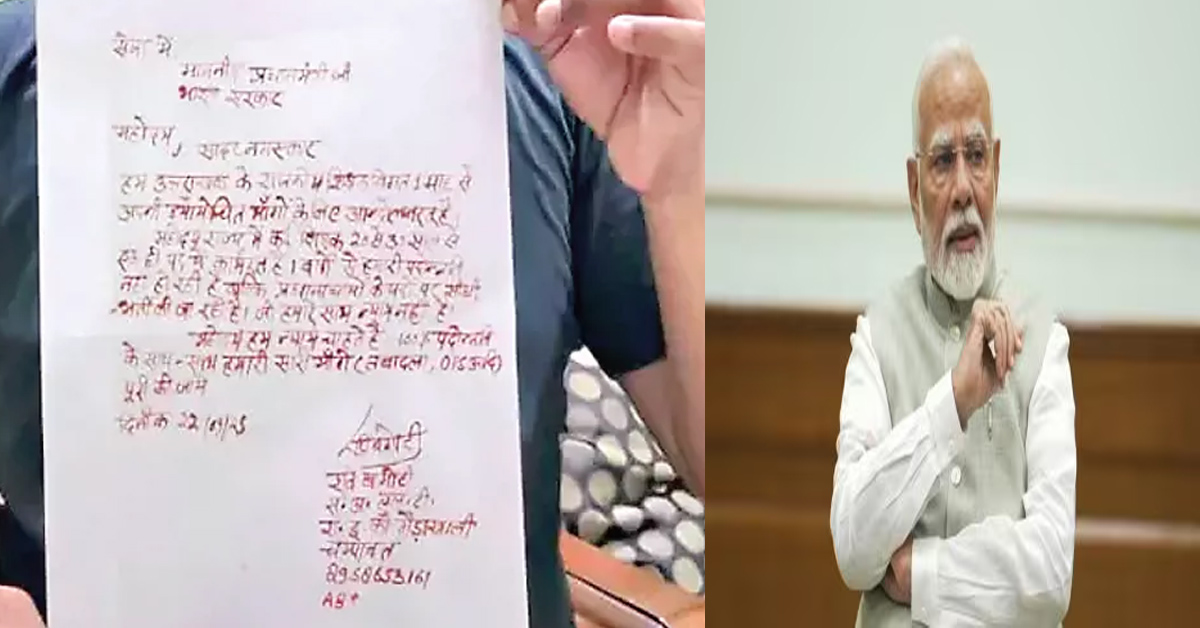 सेवा में
माननीय प्रधानमंत्री जी
भारत सरकार
महोदय,
सादर नमस्कार
हम उत्तराखण्ड के राजकीय शिक्षक विगत 1 माह से
अपनी न्यायोचित माँगों के लिए आन्दोलनरत है।
महोदय राज्य में कई शिक्षक 30 साल से
एक ही पद पे कार्यरत है। वर्षों से हमारी पदोन्नती
नहीं हो रही है क्योंकि, प्रधानाचार्यों के पदों पर सीधी
भर्ती की जा रही है। जो हमारे साथ न्याय नहीं है।
महोदय हम न्याय चाहते है 100% पदोन्नती
के साथ-साथ हमारी सारी माँगे (तबादला, OPS आदि)
पूरी की जाय
दिनाँक 22/09/25
रवि बगोटी
स.अ. एल.टी.
रा.इ.का.
चम्पावत
8958653161
AB+